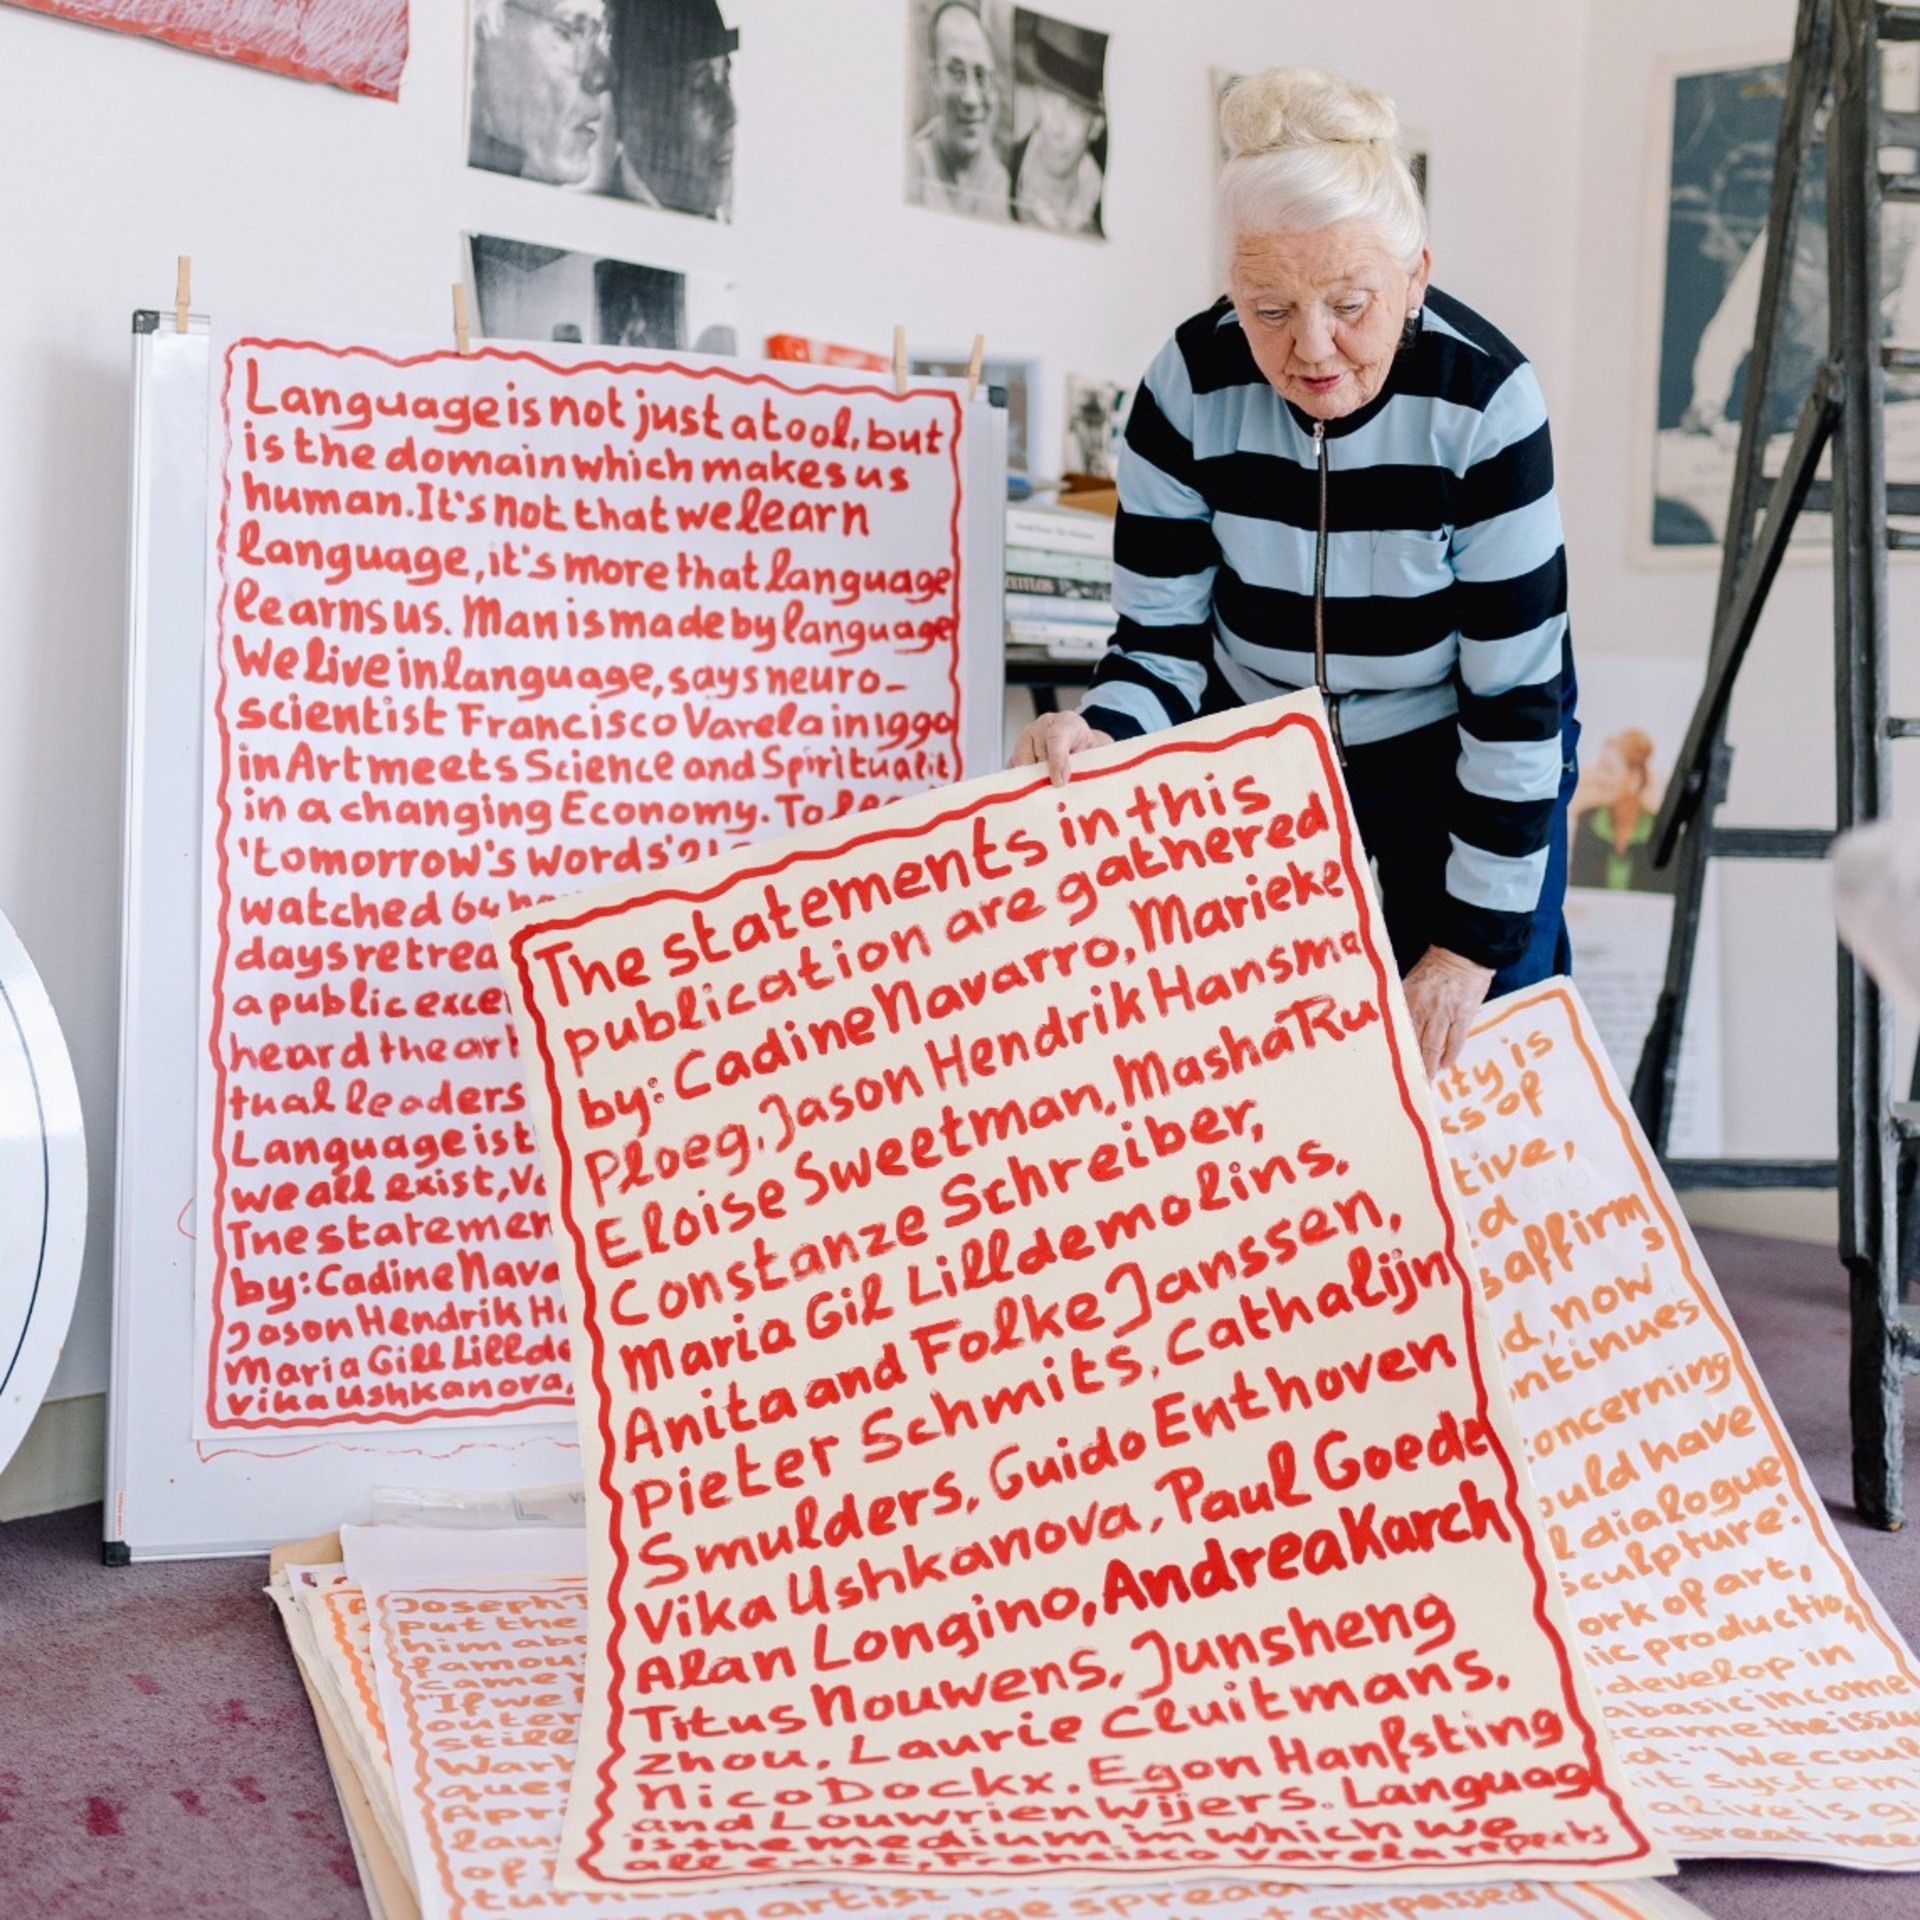 Language is not just a tool, but
is the domain which makes us
human. It's not that we learn
language, it's more that language
learns us. Man is made by language
We live in language, says neuro-
scientist Francisco Varela in 1990
in Art meets Science and Spiritualit
in a changing Economy. To
'tomorrow's words'
watched 64
days retrea
a public excer
heard the art
tual leaders
Language is t
we all exist, Va
The statemen
by: Cadine Nava
Jason Hendrik Ha
Maria Gill Lillde
Vika Ushkanova,
The statements in this
publication are gathered
by: Cadine Navarro, Marieke
Ploeg, Jason Hendrik Hansma
Eloise Sweetman, Masha Ru
Constanze Schreiber,
Maria Gil Lilldemolins,
Anita and Folke Janssen,
Pieter Schmits, Cathalijn
Smulders, Guido Enthoven
Vika Ushkanova, Paul Goede
Alan Longino, Andrea Karch
Titus Nouwens, Junsheng
Zhou, Laurie Cluitmans,
Nico Dockx, Egon Hanfsting
and Louwrien Wijers. Languag
is the medium in which we
all exist, Francisco Varela repeats
ity is
ks of
tive,
ed
s affirm
s
d, now
ontinues
concerning
ould have
l dialogue
sculpture'.
ork of art,
ic production
develop in
a basic income
came the issu
d: "We coul
it system
alive is gi
great nee
Joseph
put the
him abo
famous
came
"If we
outer
still
War
ques
Apri
lau
of
turn
an artist
age spread
surpassed
ZEITLOS